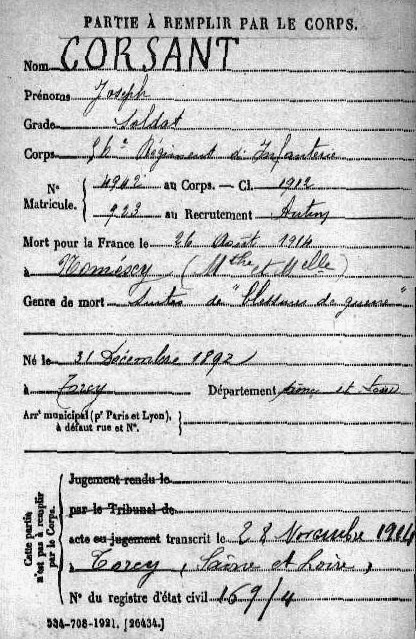 PARTIE À REMPLIR PAR LE CORPS.
Nom CORSANT
Prénoms Joseph
Grade Soldat
Corps 56e Régiment d'Infanterie
N° Matricule. { 4942 au Corps. — Cl. 1912
923 au Recrutement Autun
Mort pour la France le 26 Août 1914
à Noméxcy (Mthe et Melle)
Genre de mort Suites de "blessures de guerre"
Né le 31 Décembre 1892
à Torcy Département Saône et Loire
Arrt municipal (pr Paris et Lyon), à défaut rue et N°. }
Cette partie n'est pas à remplir par le Corps.
Jugement rendu le
par le Tribunal de
acte ou jugement transcrit le 28 Novembre 1914
à Torcy (Saône et Loire)
N° du registre d'état civil 169/4
534-708-1921. [26434.]